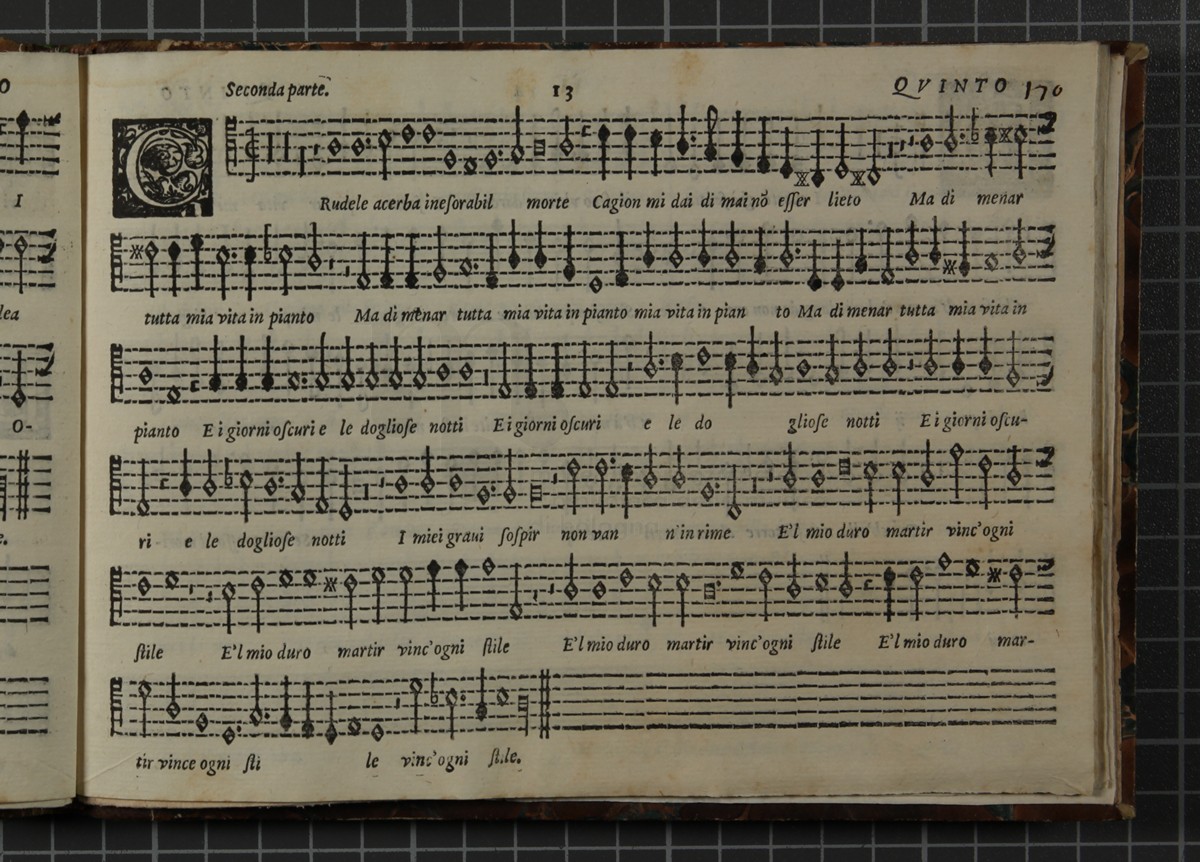 O
Seconda parte.
13
QVINTO 170
I
C
Rudele acerba ineſorabil morte Cagion mi dai di mai nõ eſſer lieto Ma di menar
lea
tutta mia vita in pianto Ma di menar tutta mia vita in pianto mia vita in pian to Ma di menar tutta mia vita in
O-
pianto E i giorni oſcuri e le doglioſe notti E i giorni oſcuri e le do glioſe notti E i giorni oſcu-
e.
ri e le doglioſe notti I miei graui ſoſpir non van n'in rime E'l mio duro martir vinc'ogni
ſtile E'l mio duro martir vinc'ogni ſtile E'l mio duro martir vinc'ogni ſtile E'l mio duro mar-
tir vince ogni ſti le vinc'ogni ſtile.